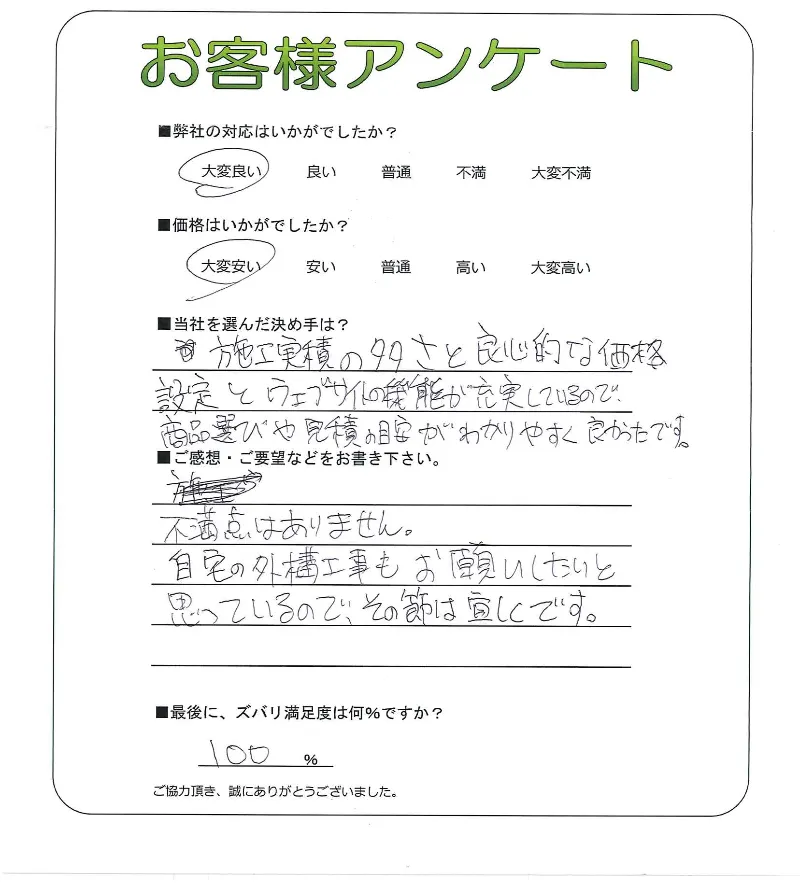 お客様アンケート
■弊社の対応はいかがでしたか？
大変良い 良い 普通 不満 大変不満
■価格はいかがでしたか？
大変安い 安い 普通 高い 大変高い
■当社を選んだ決め手は？
施工実積の多さと良心的な価格
設定とウェブサイトの機能が充実しているので、
商品選びや見積の目安がわかりやすく良かったです。
■ご感想・ご要望などをお書き下さい。
不満点はありません。
自宅の外構工事もお願いしたいと
思っているので、その節は宜しくです。
■最後に、ズバリ満足度は何%ですか？
100 %
ご協力頂き、誠にありがとうございました。